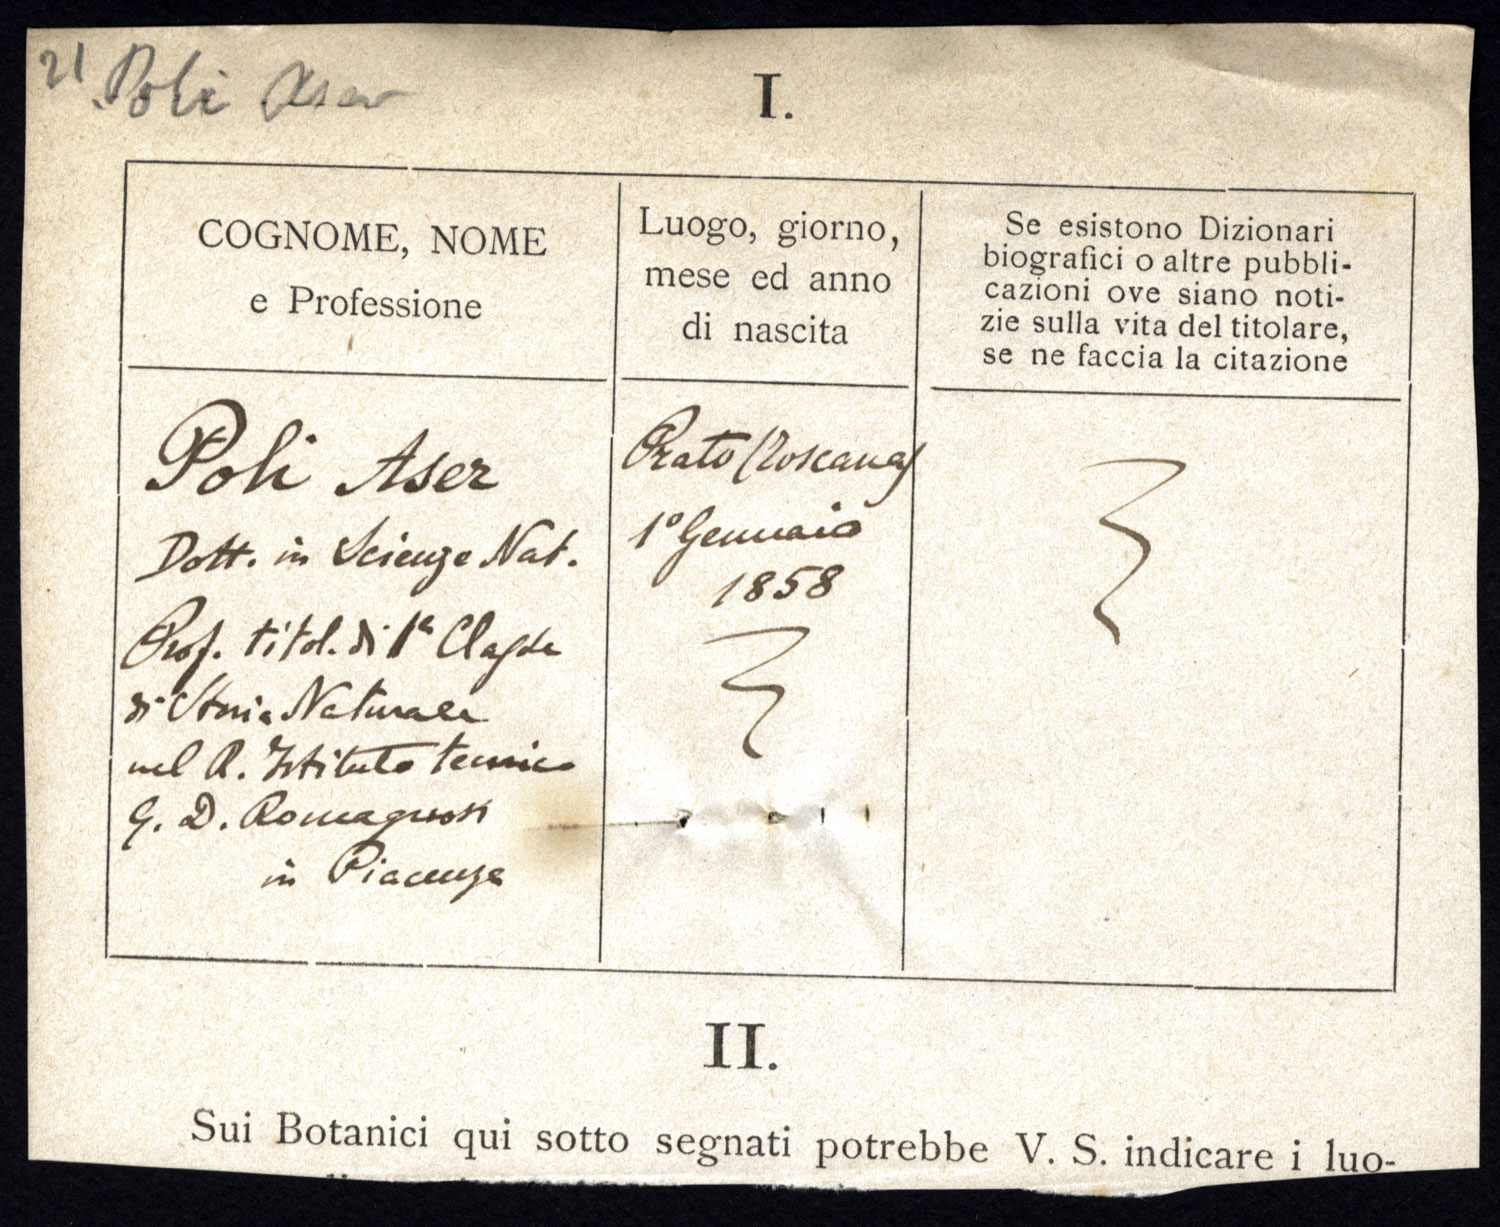 21 Poli Aser
I.
COGNOME, NOME
e Professione
Luogo, giorno,
mese ed anno
di nascita
Se esistono Dizionari
biografici o altre pubbli-
cazioni ove siano noti-
zie sulla vita del titolare,
se ne faccia la citazione
Poli Aser
Dott. in Scienze Nat.
Prof. titol. di 1ª Classe
di Storia Naturale
nel R. Istituto tecnico
G. D. Romagnosi
in Piacenza
Prato (Toscana)
1º Gennaio
1858
II.
Sui Botanici qui sotto segnati potrebbe V. S. indicare i luo-